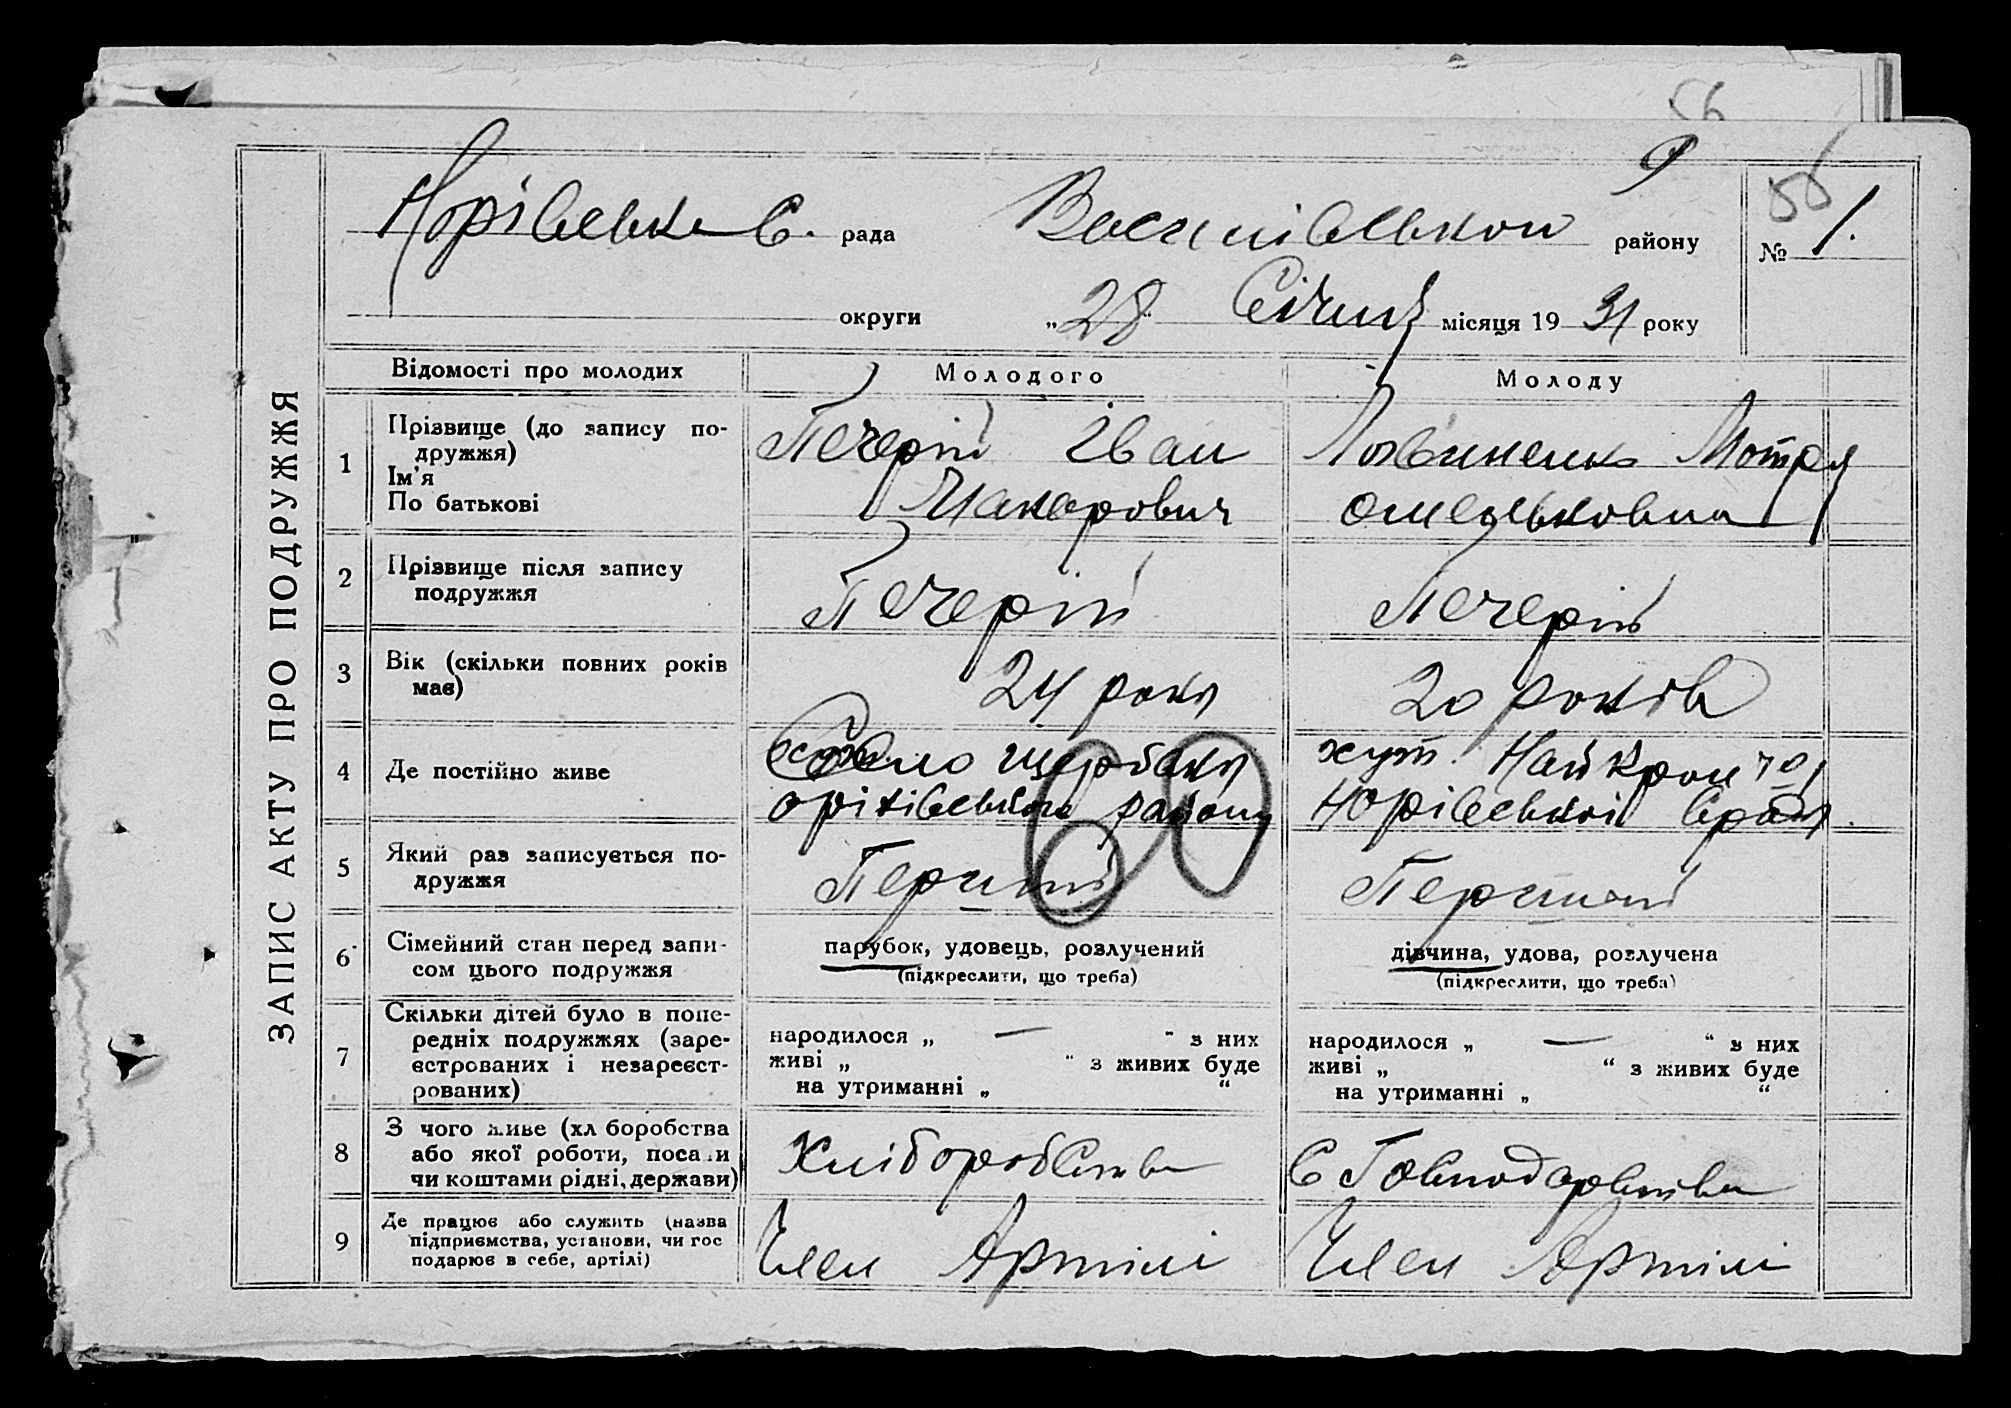 56
Норівська С. рада Василівськои району № 1.
56
округи „28" Січня місяця 1931 року
ЗАПИС АКТУ ПРО ПОДРУЖЖЯ
Відомості про молодих Молодого Молоду
1 Прізвище (до запису по-
дружжя)
Ім'я
По батькові
Печерій Іван
Макарович
Мотря
Омельковна
2 Прізвище після запису
подружжя
Печерій
Печерій
3 Вік (скільки повних років
має)
24 роки
20 років
4 Де постійно живе
Село Щербаки
оріхівського району
хут.
Норівської Сради
60
5 Який раз записується по-
дружжя
Перший
Перший
6 Сімейний стан перед запи-
сом цього подружжя
парубок, удовець, розлучений
(підкреслити, що треба)
дівчина, удова, розлучена
(підкреслити, що треба)
7 Скільки дітей було в попе-
редніх подружжях (заре-
єстрованих і незареєст-
рованих)
народилося „ — " з них
живі „ " з живих буде
на утриманні „ "
народилося „ — " з них
живі „ " з живих буде
на утриманні „ "
8 З чого живе (хліборобства
або якої роботи, посади
чи коштами рідні, держави)
Хліборобства
С Господарства
9 Де працює або служить (назва
підприємства, установи, чи гос
подарює в себе, артілі)
Член Артілі
Член Артілі